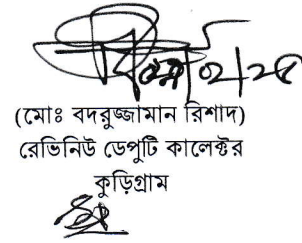 (মোঃ বদরুজ্জামান রিশাদ)
রেভিনিউ ডেপুটি কালেক্টর
কুড়িগ্রাম